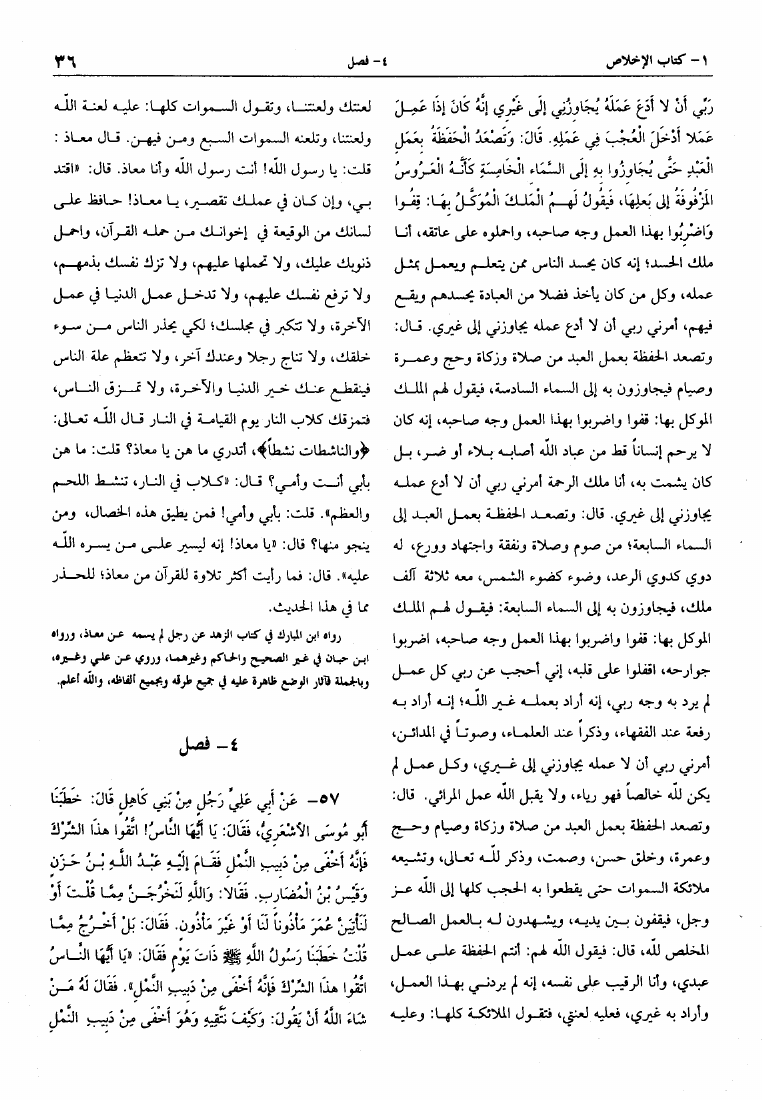 ١- كتاب الإخلاص
٤- فصل
٣٦
رَبِّي أَنْ لا أَدَعَ عَمَلَهُ يُجَاوِزُنِي إِلَى غَيْرِي إِنَّهُ كَانَ إِذَا عَمِـلَ
عَمَلا أَدْخَلَ الْعُجْبَ فِي عَمَلِهِ. قَالَ: وَتَصْعَدُ الْحَفَظَةُ بِعَمَلِ
الْعَبْدِ حَتَّى يُجَاوِزُوا بِهِ إِلَى السَّمَاءِ الْخَامِسَةِ كَأَنَّـهُ الْعَـرُوسُ
الْمَزْفُوفَةُ إِلَى بَعلِهَا، فَيَقُولُ لَهـمُ الْمَلـكُ الْمُوَكَّـلُ بِهَـا: قِفُـوا
وَاضْرِبُوا بهذا العمل وجه صاحبه، واحملوه على عاتقه، أنـا
ملك الحسد؛ إنه كان يحسد الناس ممن يتعلـم ويعمـل بمثـل
عمله، وكل من كان يأخذ فضلا من العبادة يحسدهم ويقـع
فيهم، أمرني ربي أن لا أدع عمله يجاوزني إلى غيري. قـال:
وتصعد الحفظة بعمل العبد من صلاة وزكاة وحج وعمـرة
وصيام فيجاوزون به إلى السماء السادسة، فيقول لهم الملـك
الموكل بها: قفوا واضربوا بهذا العمل وجه صاحبه، إنه كان
لا يرحم إنساناً قط من عباد اللّه أصابـه بـلاء أو ضـر، بـل
كان يشمت به، أنا ملك الرحمة أمرني ربي أن لا أدع عملـه
يجاوزني إلى غيري. قال: وتصعـد الحفظـة بعمـل العبـد إلى
السمـاء السابعة؛ من صوم وصلاة ونفقة واجتهاد وورع، له
دوي كدوي الرعد، وضوء كضوء الشمس، معه ثلاثة آلف
ملك، فيجاوزون به إلى السماء السابعة: فيقـول لهـم الملـك
الموكل بها: قفوا واضربوا بهذا العمل وجه صاحبه، اضربوا
جوارحه، اقفلوا على قلبه، إني أحجب عن ربي كل عمـل
لم يرد به وجه ربي، إنه أراد بعملـه غـير اللّـه؛ إنـه أراد بـه
رفعة عند الفقهاء، وذكراً عند العلمـاء، وصوتـاً في المدائـن،
أمرني ربي أن لا عمله يجاوزني إلى غـيري، وكـل عمـل لم
يكن للّه خالصاً فهو رياء، ولا يقبل اللّه عمل المرائي. قال:
وتصعد الحفظة بعمل العبد من صلاة وزكاة وصيام وحـج
وعمرة، وخلق حسن، وصمت، وذكر للّـه تعـالى، وتشيعه
ملائكة السموات حتى يقطعوا به الحجب كلها إلى اللّه عـز
وجل، فيقفون بـين يديـه، ويشـهدون لـه بـالعمل الصـالح
المخلص للّه، قال: فيقول اللّه لهم: أنتم الحفظة علـى عمـل
عبدي، وأنا الرقيب على نفسه، إنه لم يردنـي بهـذا العمـل،
وأراد به غيري، فعليه لعنتي، فتقـول الملائكـة كلهـا: وعليـه
لعنتك ولعنتنـا، وتقـول السـموات كلهـا: عليـه لعنـة اللّـه
ولعنتنا، وتلعنه السـموات السـبع ومـن فيهـن. قـال معـاذ :
قلت: يا رسول اللّه! أنت رسول اللّه وأنا معاذ. قال: «اقتد
بـي، وإن كـان في عملـك تقصـير، يـا معـاذ! حـافظ علـى
لسانك من الوقيعة في إخوانـك مـن حملـه القـرآن، واحمـل
ذنوبك عليك، ولا تحملها عليهم، ولا تزك نفسك بذمهـم،
ولا ترفع نفسك عليهم، ولا تدخـل عمـل الدنيـا في عمـل
الآخرة، ولا تتكبر في مجلسك؛ لكي يحذر الناس مـن سـوء
خلقك، ولا تناج رجلا وعندك آخر، ولا تتعظم علة الناس
فينقطـع عنـك خـير الدنيـا والآخـرة، ولا تمـزق النـاس،
فتمزقك كلاب النار يوم القيامـة في النـار قـال اللّـه تعـالى:
﴿والناشطات نشطاً﴾، أتدري ما هن يا معاذ؟ قلت: ما هن
بأبي أنـت وأمـي؟ قـال: «كـلاب في النـار، تنشـط اللحـم
والعظم». قلت: بأبي وأمي! فمن يطيق هذه الخصال، ومن
ينجو منها؟ قال: «يا معاذ! إنه ليسير علـى مـن يسـره اللّـه
عليه». قال: فما رأيت أكثر تلاوة للقرآن من معاذ؛ للحـذر
مما في هذا الحديث.
رواه ابن المبارك في كتاب الزهد عن رجل لم يسمه عـن معـاذ، ورواه
ابـن حبـان في غـير الصحيـح والحـاكم وغيرهمـا، وروي عـن علـي وغـيره،
وبالجملة فآثار الوضع ظاهرة عليه في جميع طرقه وبجميع ألفاظه، واللّه أعلم.
٤- فصل
٥٧- عَنْ أَبِي عَلِيٍّ رَجُلٍ مِنْ بَنِي كَاهِلٍ قَالَ: خَطَبَنَا
أَبُو مُوسَى الأَشْعَرِيُّ، فَقَالَ: يَا أَيُّهَا النَّاسُ! اتَّقُوا هَذَا الشِّرْكَ
فَإِنَّهُ أَخْفَى مِنْ دَبِيبِ النَّمْلِ فَقَـامَ إِلَيْهِ عَبْـدُ اللَّـهِ بْـنُ حَـزَنٍ
وَقَيْسُ بْنُ الْمُضَارِبِ. فَقَالا: وَاللَّهِ لَتَخْرُجَـنَّ مِمَّـا قُلْـتَ أَوْ
لَنَأْتِيَنَّ عُمَرَ مَأْذُوناً لَنَا أَوْ غَيْرَ مَأْذُونٍ. فَقَالَ: بَلْ أَخْـرُجُ مِمَّـا
قُلْتُ خَطَبَنَا رَسُولُ اللَّهِ ﷺ ذَاتَ يَوْمٍ فَقَالَ: «يَا أَيُّهَا النَّـاسُ
اتَّقُوا هَذَا الشِّرْكَ فَإِنَّهُ أَخْفَى مِنْ دَبِيبِ النَّمْلِ». فَقَالَ لَهُ مَـنْ
شَاءَ اللَّهُ أَنْ يَقُولَ: وَكَيْفَ نَتَّقِيهِ وَهُوَ أَخْفَى مِنْ دَبِيبِ النَّمْلِ